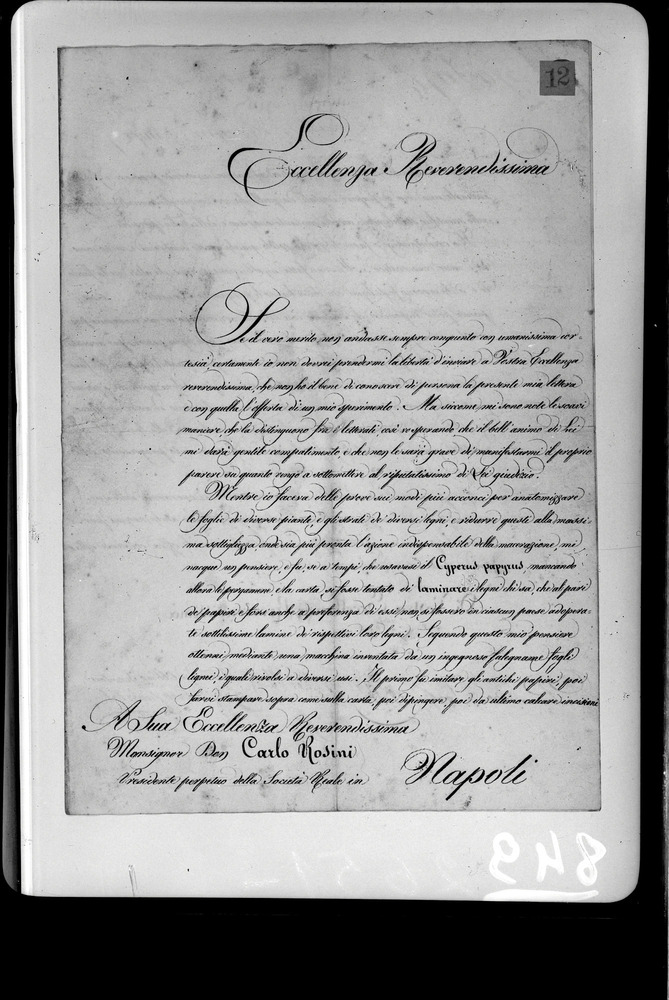 12
Eccellenza Reverendissima
Se il vero merito non andasse sempre congiunto con umanissima cor-
tesia, certamente io non dovrei prendermi la libertà d'inviare a Vostra Eccellenza
reverendissima, che non ho il bene di conoscere di persona la presente mia lettera
e con quella l'offerta di un mio sperimento. Ma siccome mi sono note le soavi
maniere, che la distinguono fra i letterati così vo sperando che il bell'animo di Lei
mi darà gentile compatimento, e che non le sarà grave di manifestarmi il proprio
parere su quanto vengo a sottomettere al riputatissimo di Lei giudizio.
Mentre io faceva delle prove sui modi più acconci per anatomizzare
le foglie di diverse piante, e gli strati de diversi legni, e ridurre questi alla massi-
ma sottigliezza, onde sia più pronta l'azione indispensabile della macerazione, mi
nacque un pensiere, e fu, se a' tempi, che usavasi il Cyperus papyrus, mancando
allora le pergamene, e la carta, si fosse tentato di laminare i legni chi sa, che al pari
de' papiri e fors' anche a preferenza di essi, non si fossero in ciascun paese adopera-
te sottilissime lamine de' rispettivi loro legni. Seguendo questo mio pensiere
ottenni mediante una macchina inventata da un ingegnoso falegname fogli
legnei, i quali rivolsi a diversi usi. Il primo fu imitare gli antichi papiri, poi
farvi stampare sopra come sulla carta, poi dipingere, poi da ultimo calcare incisioni
A Sua Eccellenza Reverendissima
Monsignor Don Carlo Rosini
Presidente perpetuo della Società Reale in Napoli
849